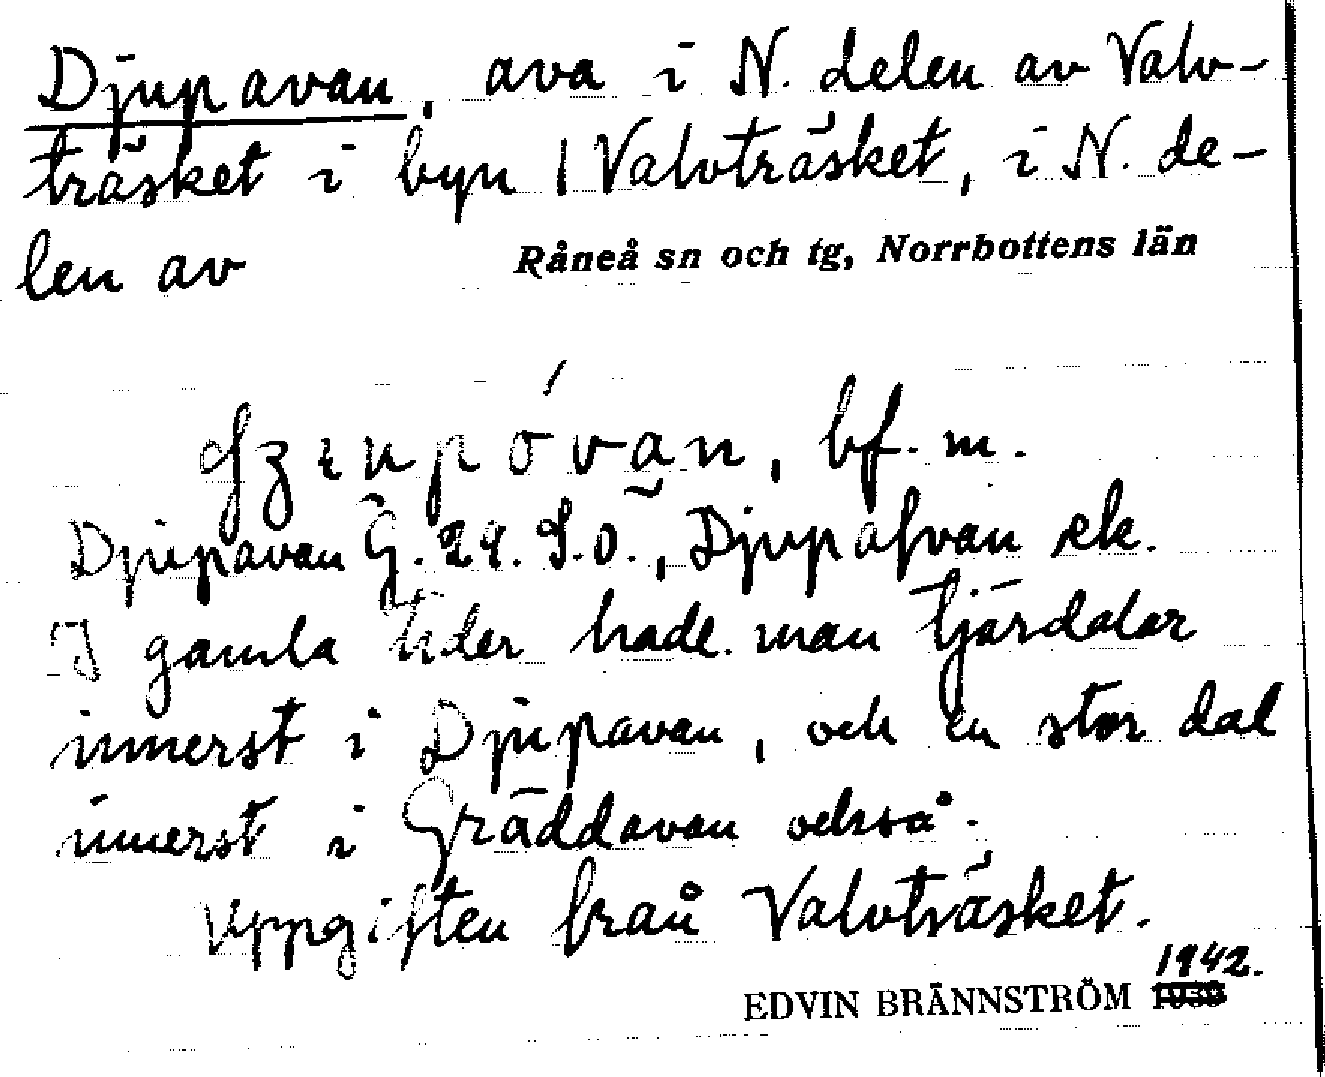 Djupavan, ava i N. delen av Valv-
träsket i byn 1 Valvträsket, i N. de-
len av Råneå sn och tg, Norrbottens län
bf. m.
Djupavan G. 24. S.O., Djupafvan ek.
I gamla tider hade man tjärdalar
innerst i Djupavan, och en stor dal
innerst i Gräddavan också.
Uppgiften från Valvträsket.
1942.
EDVIN BRÄNNSTRÖM 1939